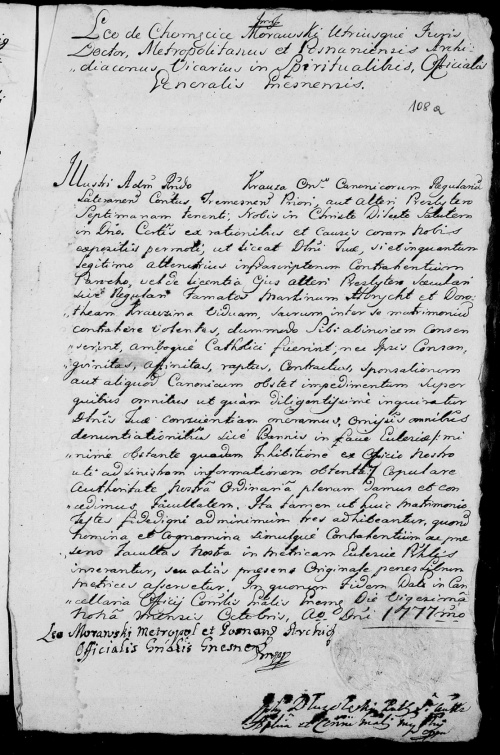 Leo de Chomęcice Morawski Utriusque Juris
Doctor, Metropolitanus et Posnaniensis Archi
diaconus, Vicarius in Spiritualibus, Officialis
Generalis Gnesnensis.
108a
Illustri Admº Rndo Krauza Canonicorum Regularium
Lateranen Contus Tremesnen Priori, aut alteri Presbytero
Septimanam tenenti, Nobis in Christo Dilecto Salutem
in Dno. Certis ex rationibus et Causis coram Nobis
expositis permoti, ut liceat Dtni Tuæ, si et inquantum
legitime attentatus infrascriptorum Contrahentium
Parocho, vel de licentia Ejus alteri Presbytero Sæculari
sive Regulari Famatos Martinum Albrycht et Doro
theam Krauzina Viduam, Sacrum inter se matrimonium
contrahere volentes, dummodo Sibi ab invicem Consen
serint, amboque Catholici fuerint, nec Ipsis Consan
gvinitas, affinitas, raptus, Contractus, sponsationum
aut aliquod Canonicum obstet impedimentum super
quibus omnibus ut quàm diligentissimè inquiratur
Dtnis Tuæ conscientiam oneramus, Omissis omnibus
denuntiationibus sive Bannis in facie Ecclesiæ, mi
nime obstante quadam Inhibitione ex Officio Nostro
uti ad sinistram informationem obtenta, Copulare
Authoritate Nostra Ordinaria plenam Damus et con
cedimus Facultatem, Ita tamen ut huic Matrimonio
Testes fidedigni ad minimum tres adhibeantur, quorum
nomina et Cognomina simulque Contrahentium ac præ
sens Facultas Nostra in metricam Ecclesiæ
inserantur, seu aliàs præsens Originale penes librum
metrices asservetur. In quorum Fidem Datt in Can
cellaria Officij Gnesnæ Die Vigesima
Nona mensis Octobris, Aoº Dni 1777mo
Leo Morawski Metropol et Posnan Archid
Officialis Gnalis Gnesnen